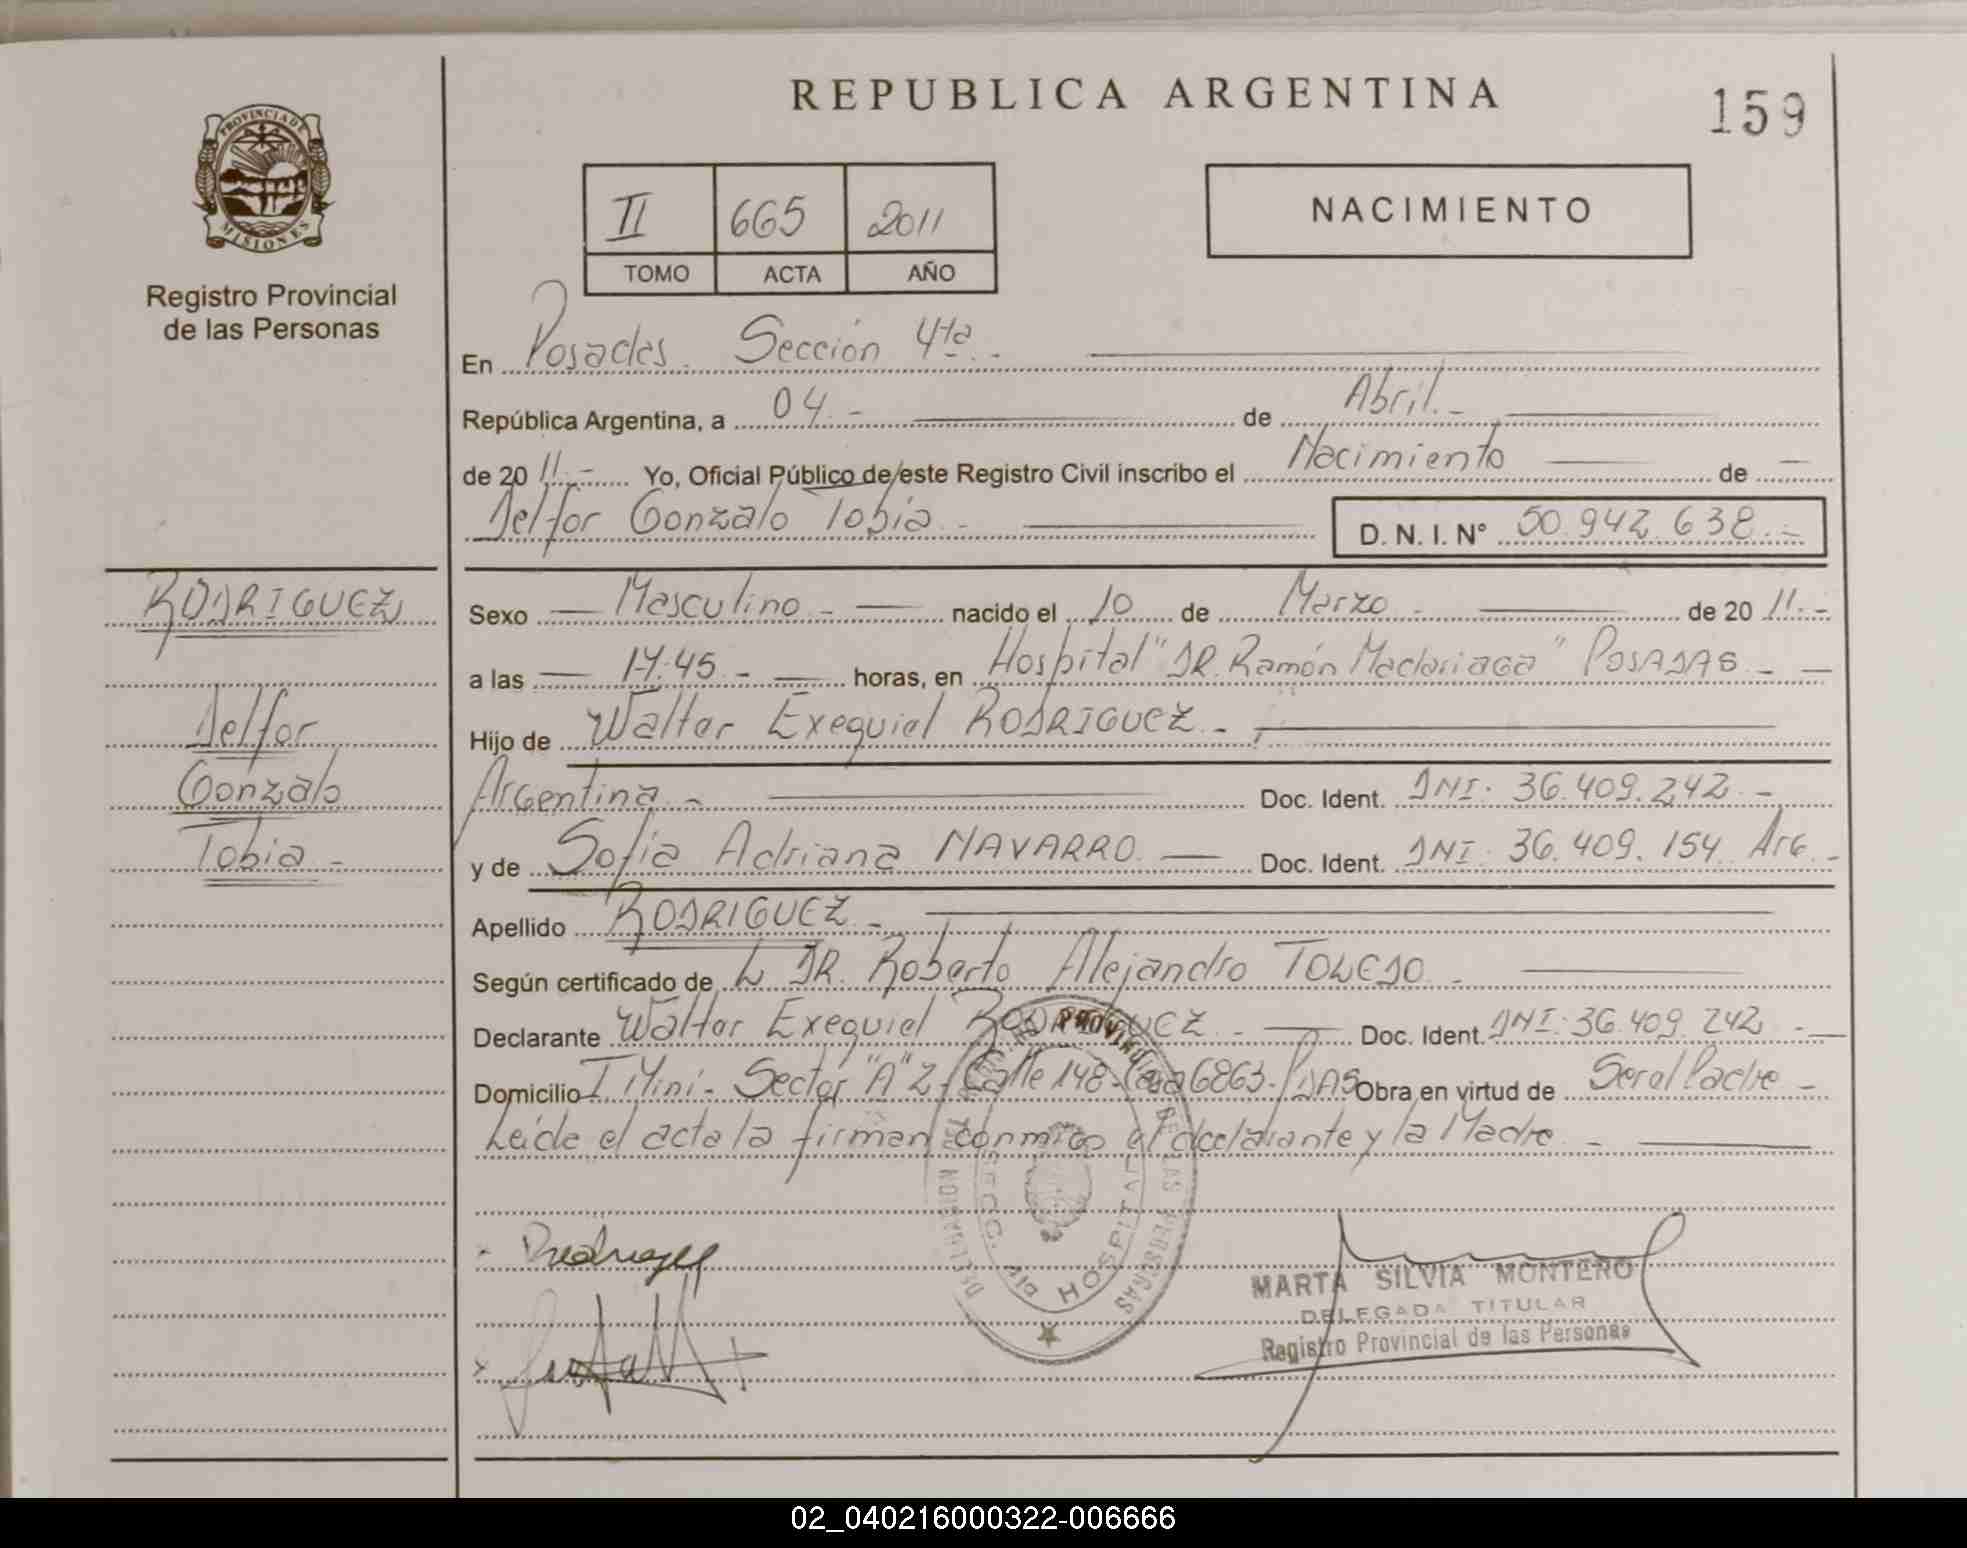 REPUBLICA ARGENTINA
159
PROVINCIA DE
MISIONES
Registro Provincial
de las Personas
II 665 2011
TOMO ACTA AÑO
NACIMIENTO
En Posadas. Sección 4ta.-
República Argentina, a 04.- de Abril.-
de 2011.- Yo, Oficial Público de este Registro Civil inscribo el Nacimiento de
Delfor Gonzalo Tobia.- D. N. I. N° 50.942.638.-
RODRIGUEZ
Delfor
Gonzalo
Tobia.-
Sexo Masculino.- nacido el 10 de Marzo.- de 2011.-
a las 17:45.- horas, en Hospital "DR. Ramón Madariaga" POSADAS.-
Hijo de Walter Exequiel RODRIGUEZ.-
Argentina.- Doc. Ident. DNI. 36.409.242.-
y de Sofia Adriana NAVARRO. Doc. Ident. DNI. 36.409.154 Arg.-
Apellido RODRIGUEZ.-
Según certificado de DR. Roberto Alejandro TOLEDO.-
Declarante Walter Exequiel RODRIGUEZ.- Doc. Ident. DNI. 36.409.242.-
Domicilio I. Miní- Sector "A" 2- Calle 148- Casa 6863- PDAS Obra en virtud de Ser el Padre-
Leída el acta la firman conmigo el declarante y la Madre.-
DELEGACION
DE LAS PERSONAS
SECC. HOSPITAL
MARTA SILVIA MONTERO
DELEGADA TITULAR
Registro Provincial de las Personas
02_040216000322-006666